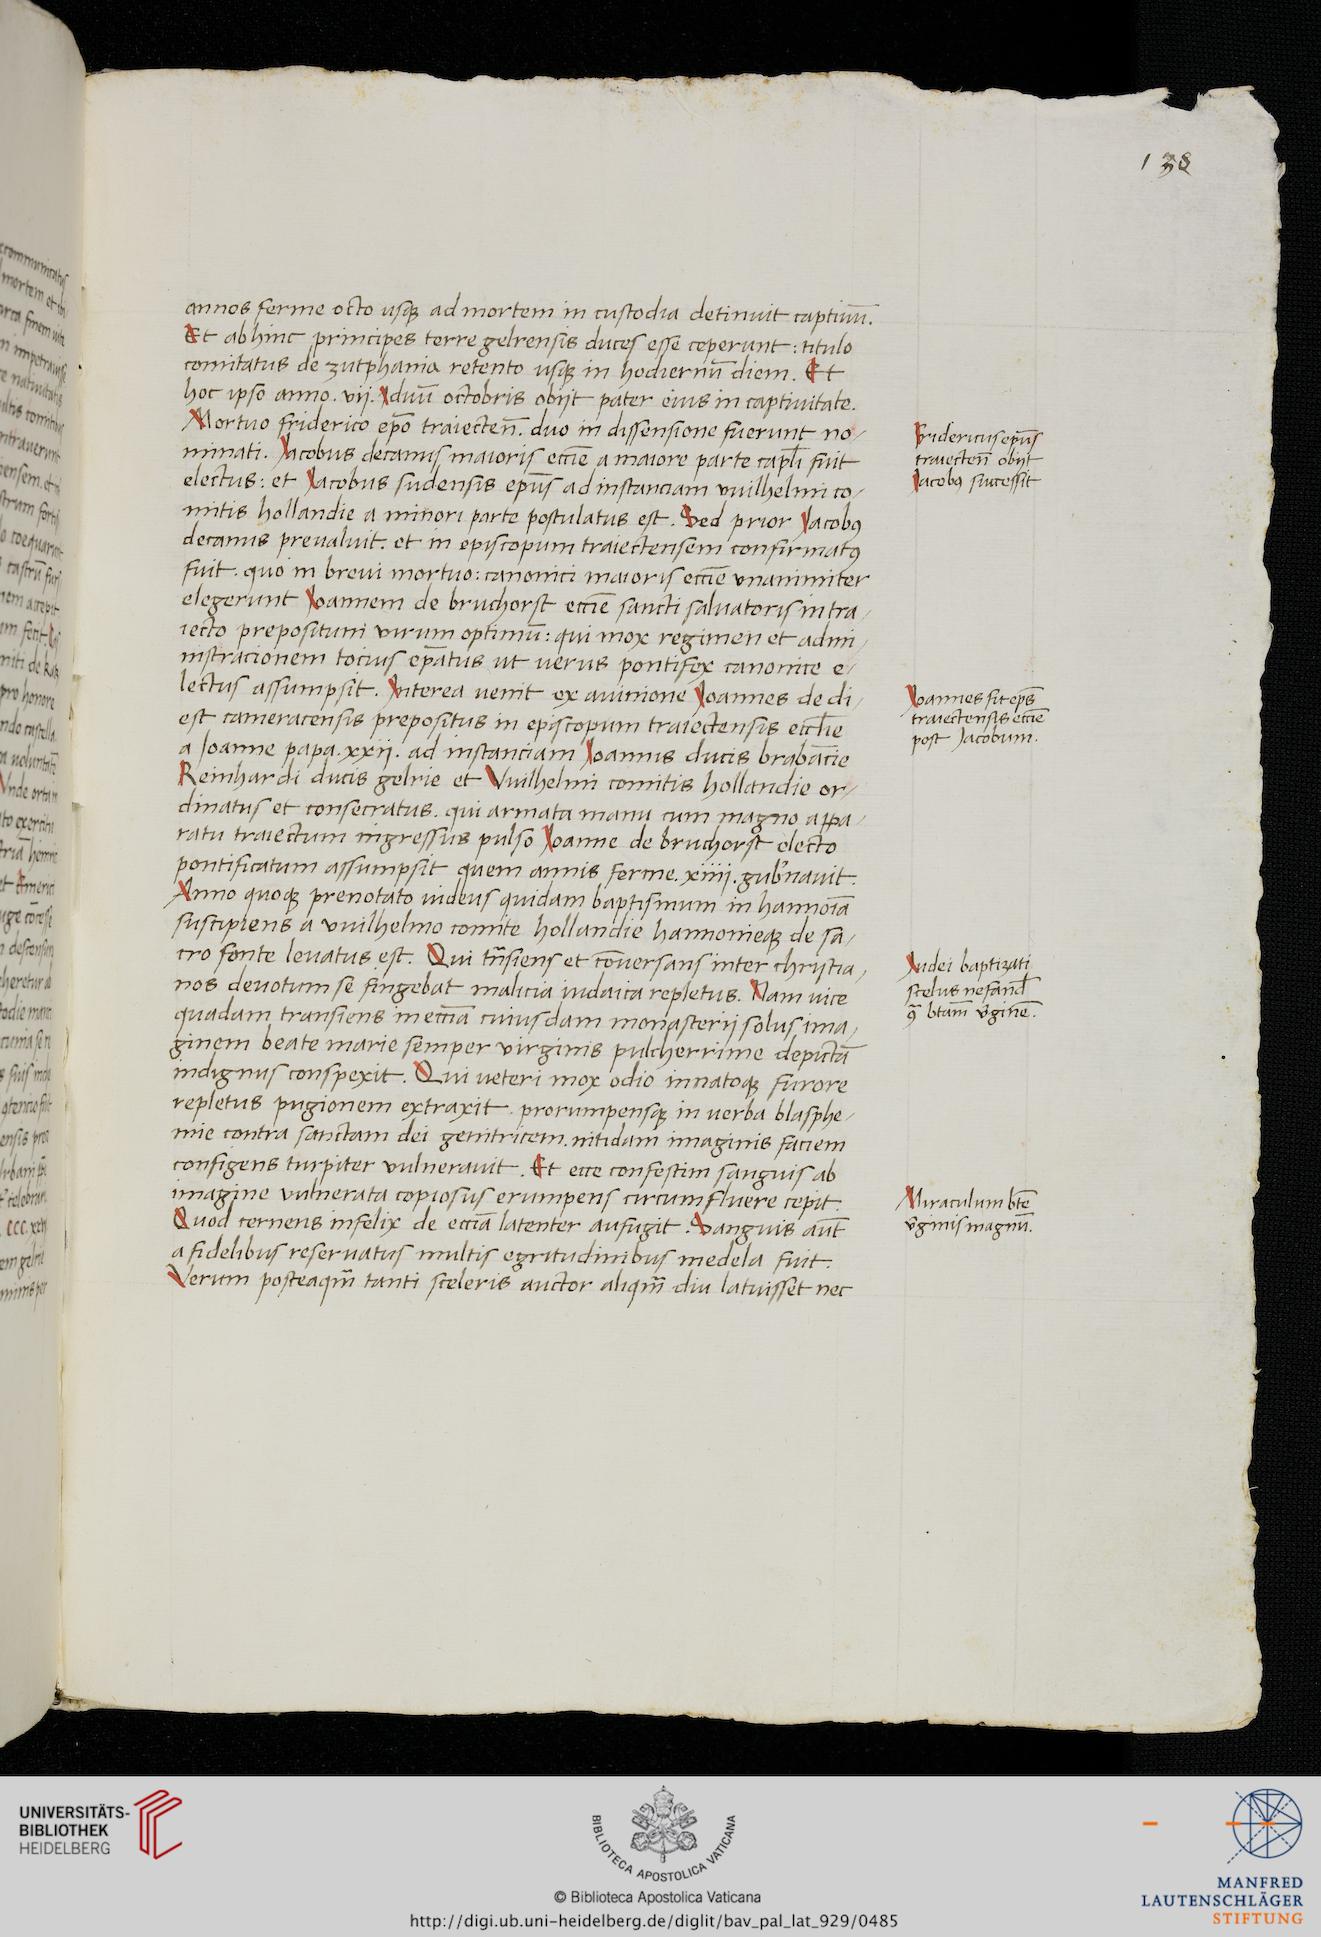 138
annos ferme octo usqꝫ ad mortem in custodia detinuit captiuū.
Et abhinc principes terre gelrensis duces esse ceperunt : titulo
comitatus de zutphania retento usqꝫ in hodiernū diem. Et
hoc ipso anno. vii. Iduū octobris obijt pater eius in captiuitate.
Mortuo friderico ep̄o traiecten̄. duo in dissensione fuerunt no-
minati. Iacobus decanus maioris eccīe a maiore parte capl̄i fuit
electus: et Iacobus sudensis ep̄us ad instanciam vuilhelmi co-
mitis hollandie a minori parte postulatus est. Sed prior Iacobꝰ
decanus preualuit. et in episcopum traiectensem confirmatꝰ
fuit. quo in brevi mortuo: canonici maioris eccīe vnanimiter
elegerunt Ioannem de bruchorst eccīe sancti saluatoris in tra-
iecto prepositum virum optimū: qui mox regimen et admi-
nistracionem tocius ep̄atus ut verus pontifex canonice e-
lectus assumpsit. Interea uenit ex auinione Ioannes de di-
est cameracensis prepositus in episcopum traiectensis eccl̄ie
a Joanne papa. xxii. ad instanciam Ioannis ducis brabācie
Reinhardi ducis gelrie et Vuilhelmi comitis hollandie or-
dinatus et consecratus. qui armata manu cum magno appa-
ratu traiectum ingressus pulso Ioanne de bruchorst electo
pontificatum assumpsit quem annis ferme. xiiii. gub'nauit.
Anno quoqꝫ prenotato iudeus quidam baptismum in hannoīa
suscipiens a vuilhelmo comite hollandie hannonieqꝫ de sa-
cro fonte leuatus est. Qui trn̄siens et cōuersans inter christia-
nos deuotum se fingebat malicia iudaica repletus. Nam uice
quadam transiens in eccīa cuiusdam monasterii solus ima-
ginem beate marie semper virginis pulcherrime depictā
indignus conspexit. Qui ueteri mox odio innatoqꝫ furore
repletus pugionem extraxit. prorumpensqꝫ in uerba blasphe-
mie contra sanctam dei genitricem. nitidam imaginis faciem
configens turpiter vulnerauit. Et ecce confestim sanguis ab
imagine vulnerata copiosus erumpens circumfluere cepit.
Quod cernens infelix de eccīa latenter aufugit. Sanguis aūt
a fidelibus reseruatus multis egritudinibus medela fuit.
Verum posteaqm̄ tanti sceleris auctor aliqm̄ diu latuisset nec
Fridericus ep̄us
traiecten̄ obijt
Iacobꝰ successit
Ioannes fit ep̄s
traiectensis eccīe
post Jacobum.
Iudei baptizati
scelus nefand̄
btam̄ v̄ginē.
Miraculum btē
v̄ginis magnū.
UNIVERSITÄTS-
BIBLIOTHEK
HEIDELBERG
BIBLIOTECA APOSTOLICA VATICANA
© Biblioteca Apostolica Vaticana
http://digi.ub.uni-heidelberg.de/diglit/bav_pal_lat_929/0485
MANFRED
LAUTENSCHLÄGER
STIFTUNG